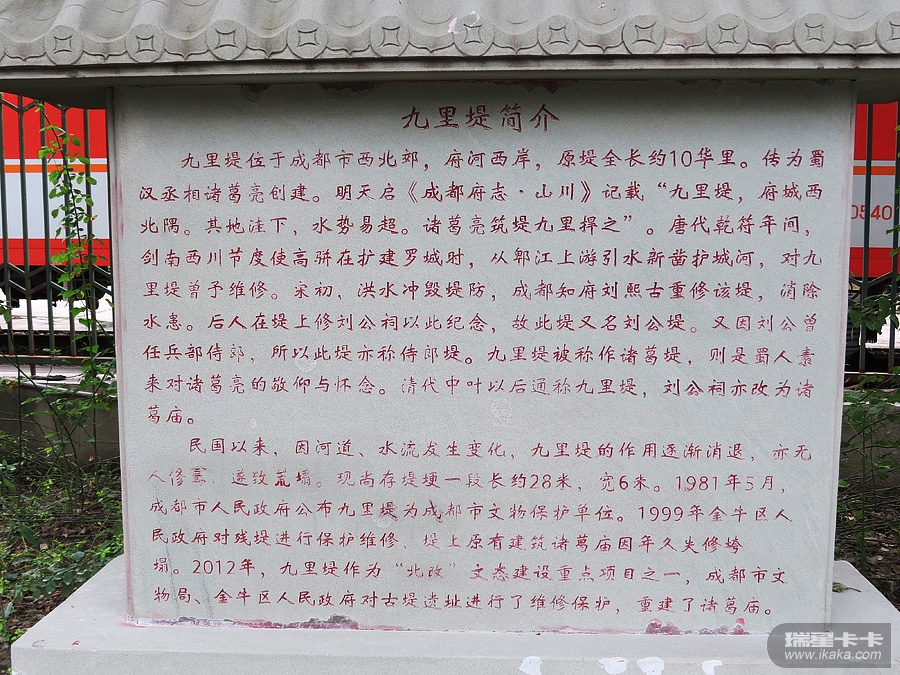 九里堤简介
九里堤位于成都市西北郊，府河西岸，原堤全长约10华里。传为蜀
汉丞相诸葛亮创建。明天启《成都府志·山川》记载“九里堤，府城西
北隅。其地洼下，水势易超。诸葛亮筑堤九里捍之”。唐代乾符年间，
剑南西川节度使高骈在扩建罗城时，从郫江上游引水新凿护城河，对九
里堤曾予维修。宋初、洪水冲毁堤防，成都知府刘熙古重修该堤，消除
水患。后人在堤上修刘公祠以此纪念，故此堤又名刘公堤。又因刘公曾
任兵部侍郎，所以此堤亦称侍郎堤。九里堤被称作诸葛堤，则是蜀人素
来对诸葛亮的敬仰与怀念。清代中叶以后通称九里堤，刘公祠亦改为诸
葛庙。
民国以来，因河道、水流发生变化，九里堤的作用逐渐消退，亦无
人修葺、遂致荒塌。现尚存堤埂一段长约28米，宽6米。1981年5月，
成都市人民政府公布九里堤为成都市文物保护单位。1999年金牛区人
民政府对残堤进行保护维修、堤上原有建筑诸葛庙因年久失修垮
塌。2012年，九里堤作为“北改”文态建设重点项目之一，成都市文
物局、金牛区人民政府对古堤遗址进行了维修保护，重建了诸葛庙。
0540
瑞星卡卡
www.ikaka.com